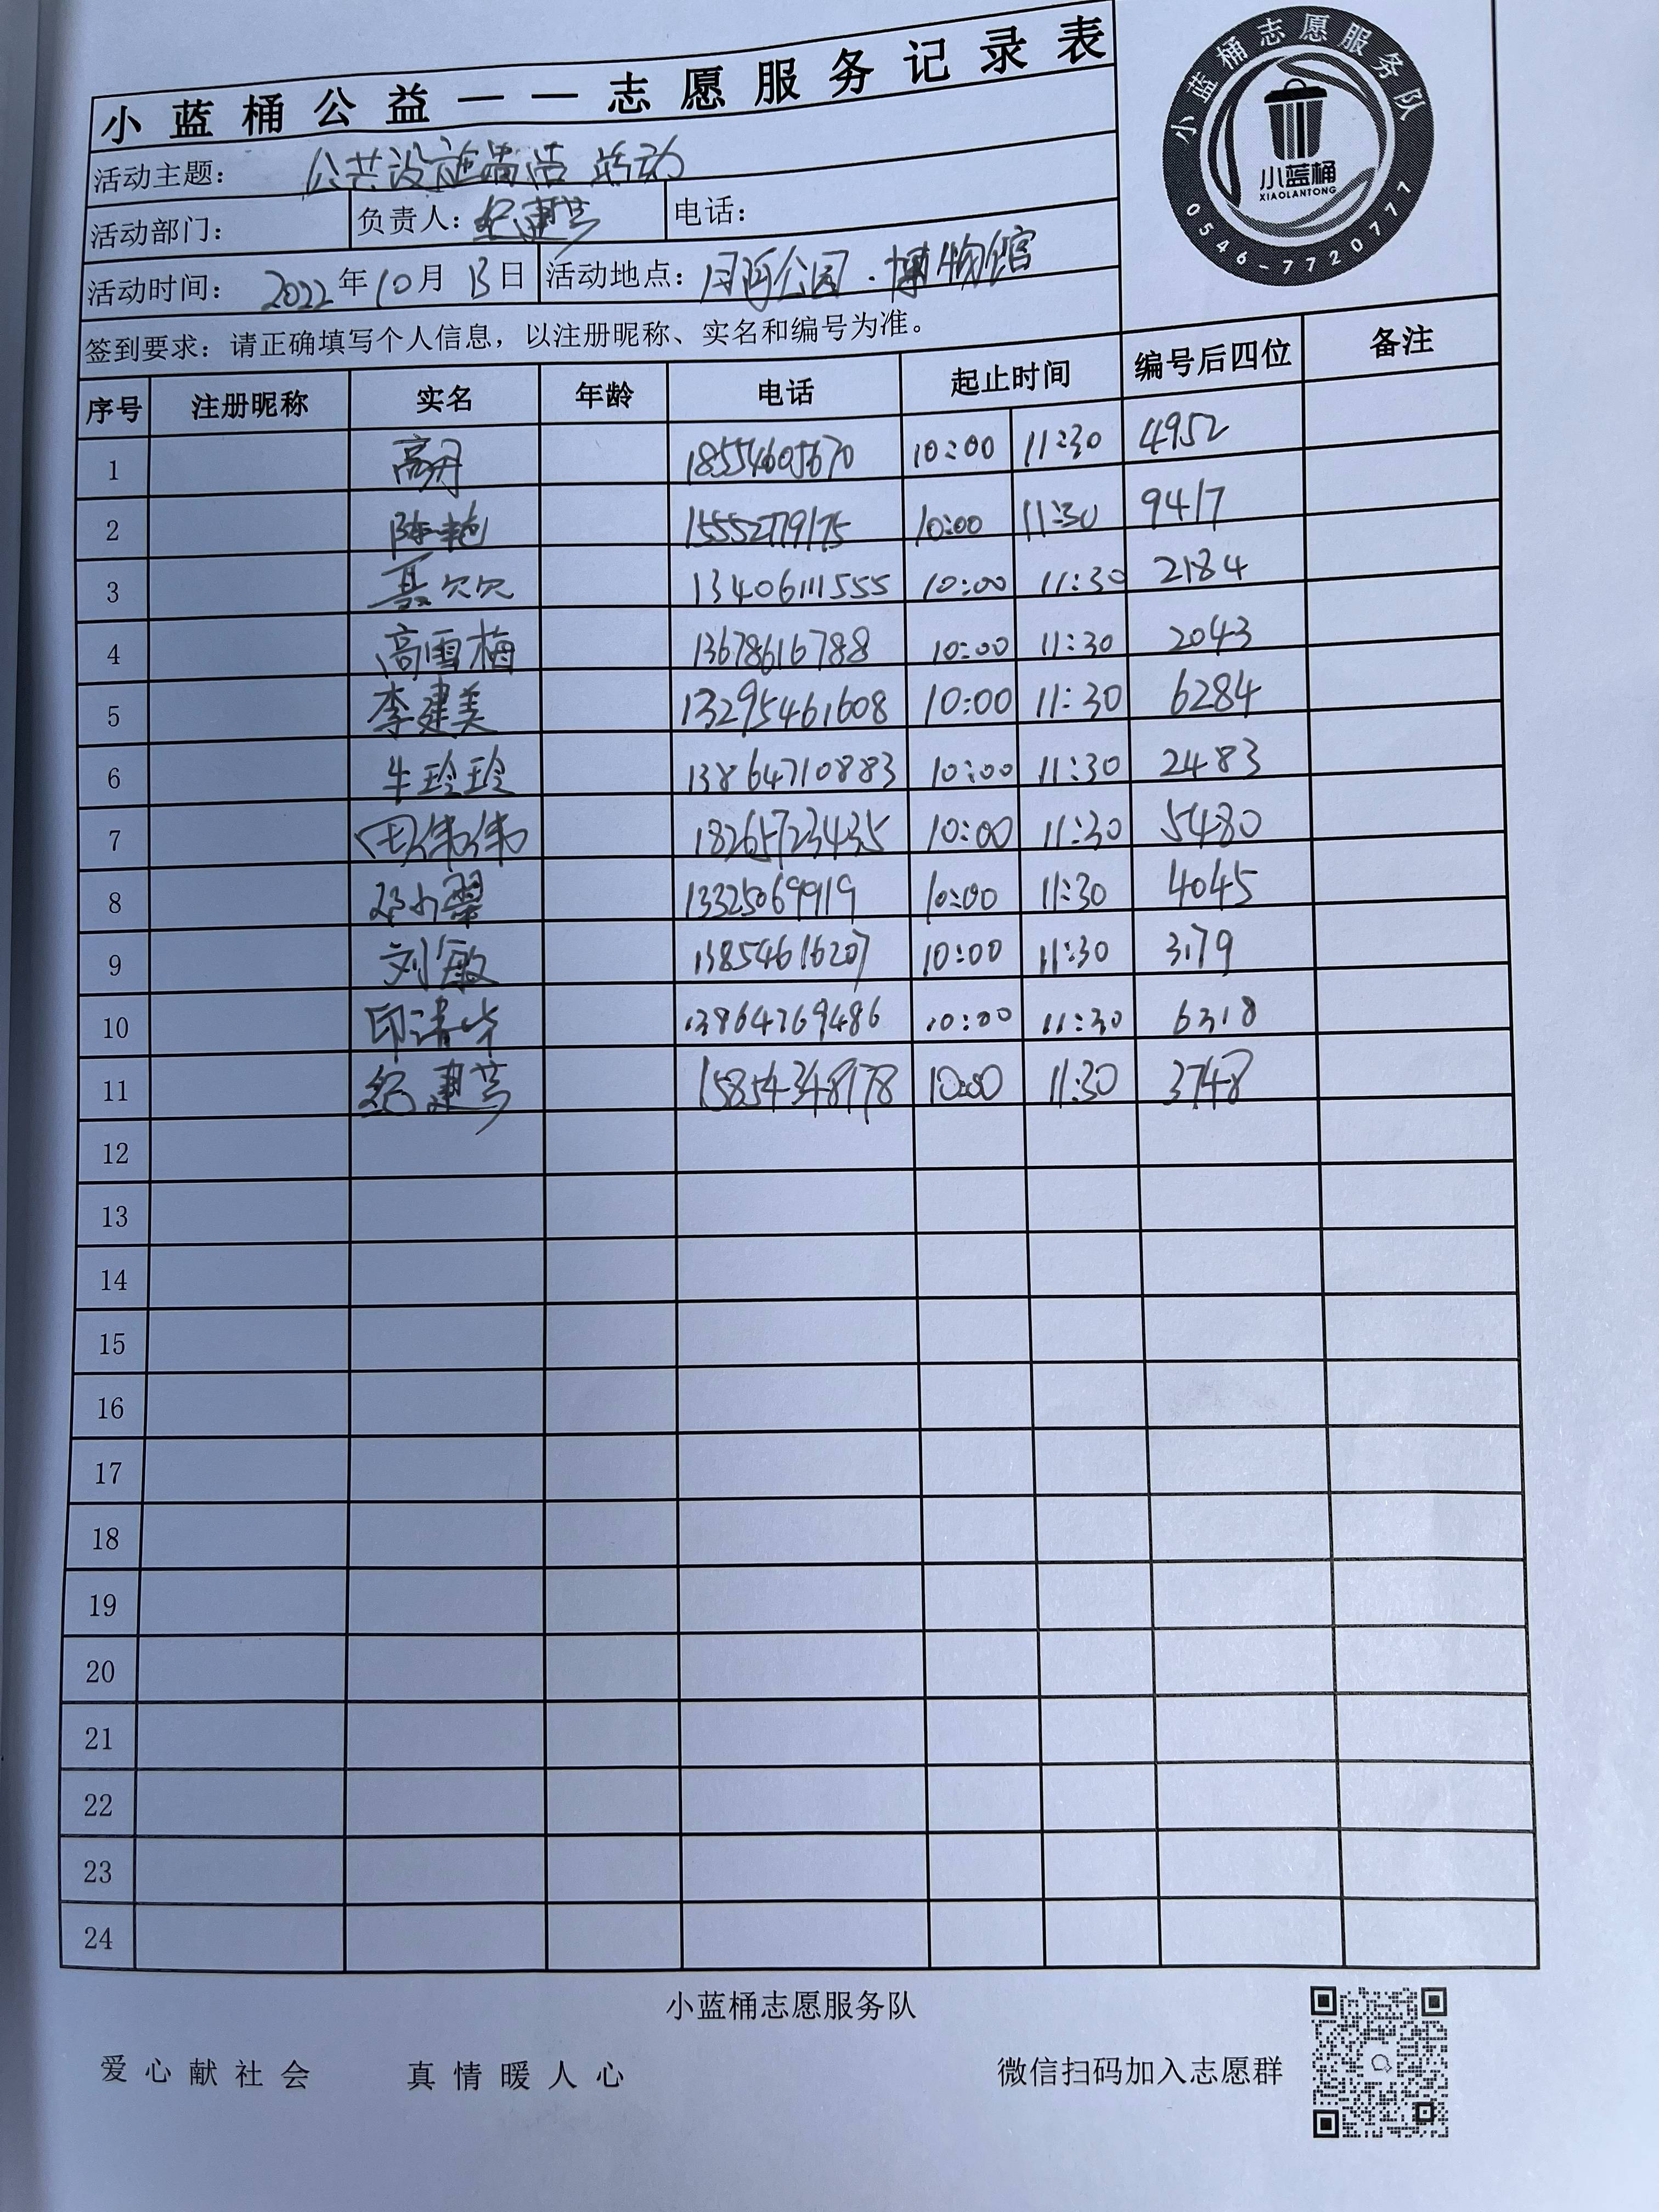 小蓝桶公益——志愿服务记录表
小蓝桶志愿服务队
小蓝桶
XIAOLANTONG
0546-7720777
活动主题： 公共设施清洁 活动
活动部门： 负责人： 纪建芳 电话：
活动时间： 2022年10月13日 活动地点： 月河公园.博物馆
签到要求：请正确填写个人信息，以注册昵称、实名和编号为准。
序号 注册昵称 实名 年龄 电话 起止时间 编号后四位 备注
1 高丹 18554605670 10:00 11:30 4952
2 陈艳 15552779175 10:00 11:30 9417
3 聂欠欠 13406111555 10:00 11:30 2184
4 高雪梅 13678616788 10:00 11:30 2043
5 李建美 13295461608 10:00 11:30 6284
6 牛玲玲 13864710883 10:00 11:30 2483
7 田伟伟 18265723435 10:00 11:30 5480
8 小翠 13325069919 10:00 11:30 4045
9 刘敏 13854616207 10:00 11:30 3179
10 印清华 13864769486 10:00 11:30 6318
11 纪建芳 15854348178 10:00 11:30 3748
12
13
14
15
16
17
18
19
20
21
22
23
24
小蓝桶志愿服务队
爱心献社会 真情暖人心 微信扫码加入志愿群